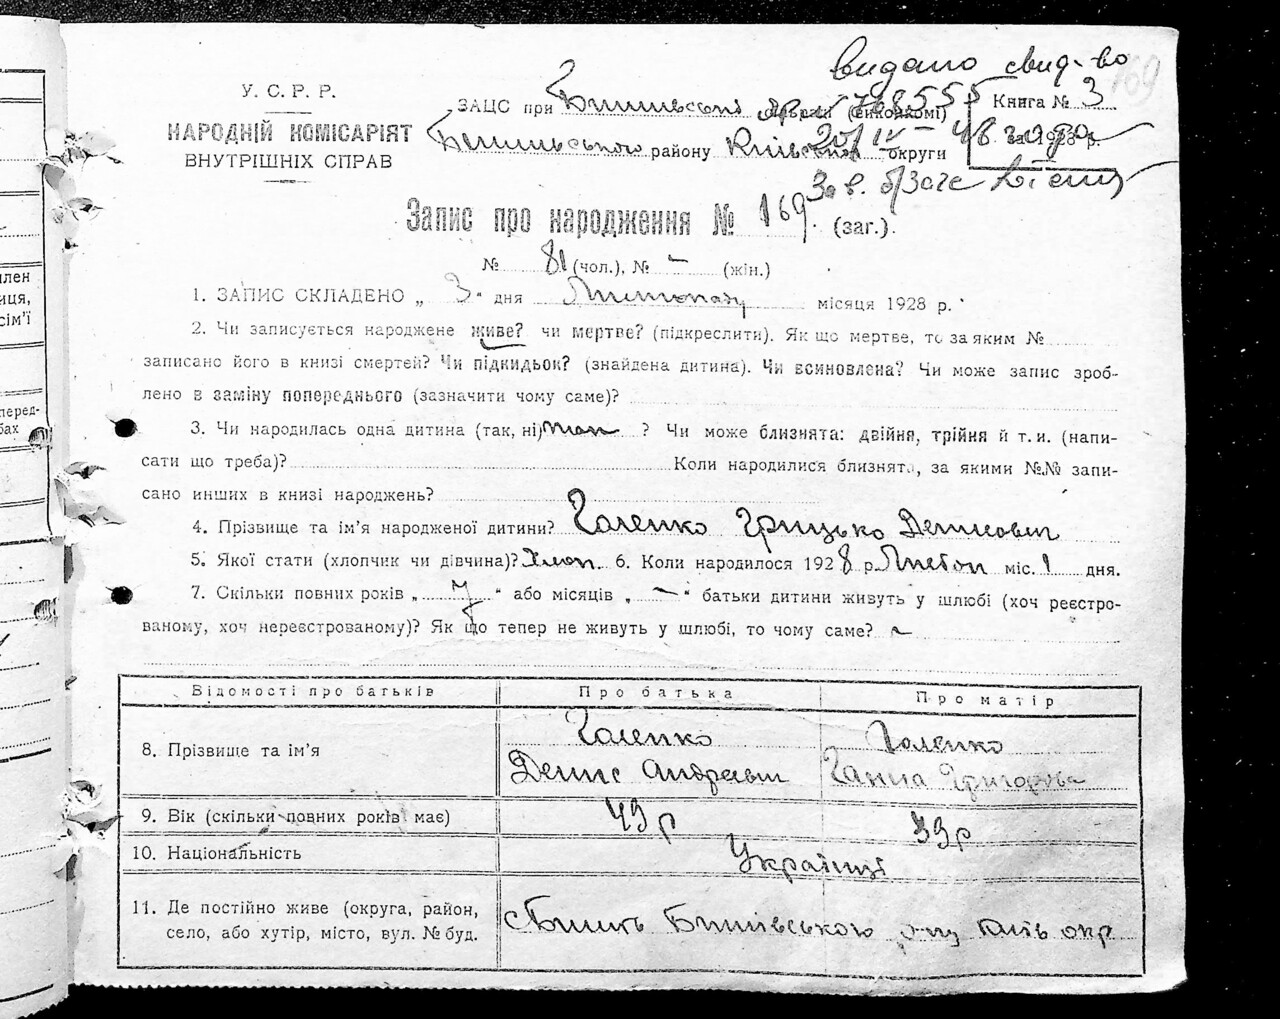 видано свид-во
169
У. С. Р. Р.
НАРОДНІЙ КОМІСАРІЯТ
ВНУТРІШНІХ СПРАВ
ЗАЦС при (виконкомі) 768555
району Київської округи
Книга № 3
за 1928 р.
20/IV - 48 года
Зав. б/Загс
Запис про народження № 169 (заг.).
№ 81 (чол.), № - (жін.)
1. ЗАПИС СКЛАДЕНО „ 3 “ дня Листопаду місяця 1928 р.
2. Чи записується народжене живе? чи мертве? (підкреслити). Як що мертве, то за яким №
записано його в книзі смертей? Чи підкидьок? (знайдена дитина). Чи всиновлена? Чи може запис зроб-
лено в заміну попереднього (зазначити чому саме)?
3. Чи народилась одна дитина (так, ні) так ? Чи може близнята: двійня, трійня й т. и. (напи-
сати що треба)? Коли народилися близнята, за якими №№ запи-
сано инших в книзі народжень?
4. Прізвище та ім’я народженої дитини? Галенко Грицько Денисович
5. Якої стати (хлопчик чи дівчина)? Хлоп. 6. Коли народилося 1928 р. Листоп міс. 1 дня.
7. Скільки повних років „ 7 “ або місяців „ — “ батьки дитини живуть у шлюбі (хоч реєстро-
ваному, хоч нереєстрованому)? Як що тепер не живуть у шлюбі, то чому саме? ~
Відомості про батьків Про батька Про матір
8. Прізвище та ім’я Галенко Денис Андреєвич Галенко Ганна Григоровна
9. Вік (скільки повних років має) 43 р 39 р
10. Національність Українці
11. Де постійно живе (округа, район,
село, або хутір, місто, вул. № буд. Бишівського Київ окр
член
иця,
сім’ї
перед-
бах